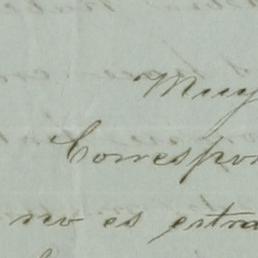 Muy
Correspon
no es estra